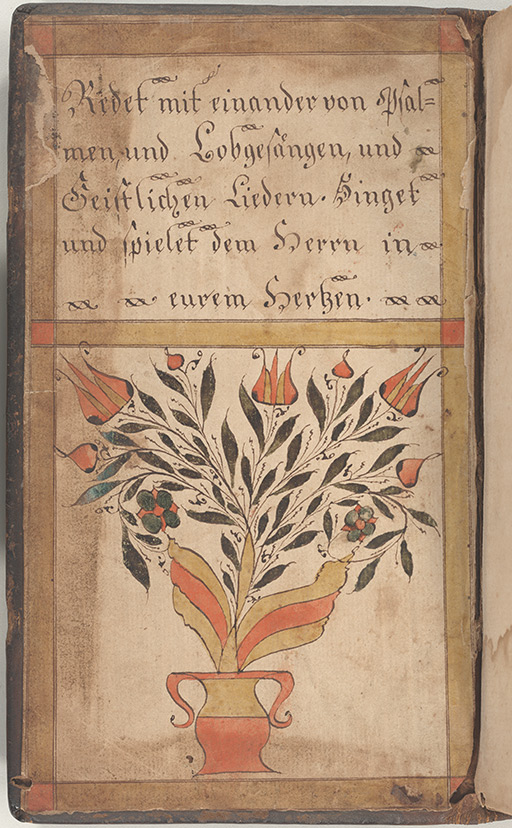 Redet mit einander von Psal=
men, und Lobgesängen, und
Geistlichen Liedern. Singet
und spielet dem Herrn in
eurem Hertzen.